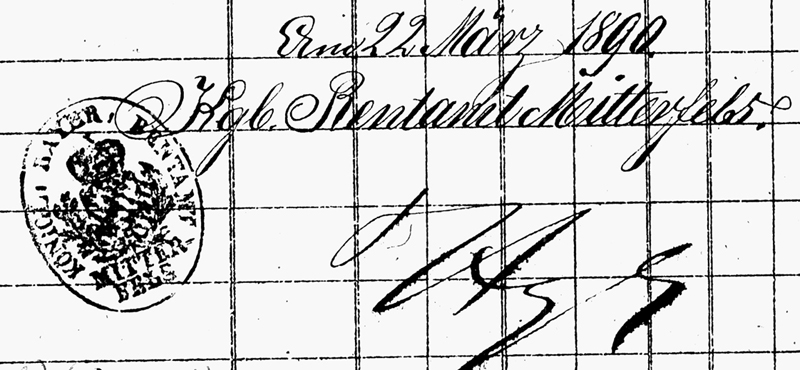 Am 22 März 1890
Kgl. Rentamt Mitterfels.
KÖNIGL. BAYER. RENTAMT
MITTER
FELS